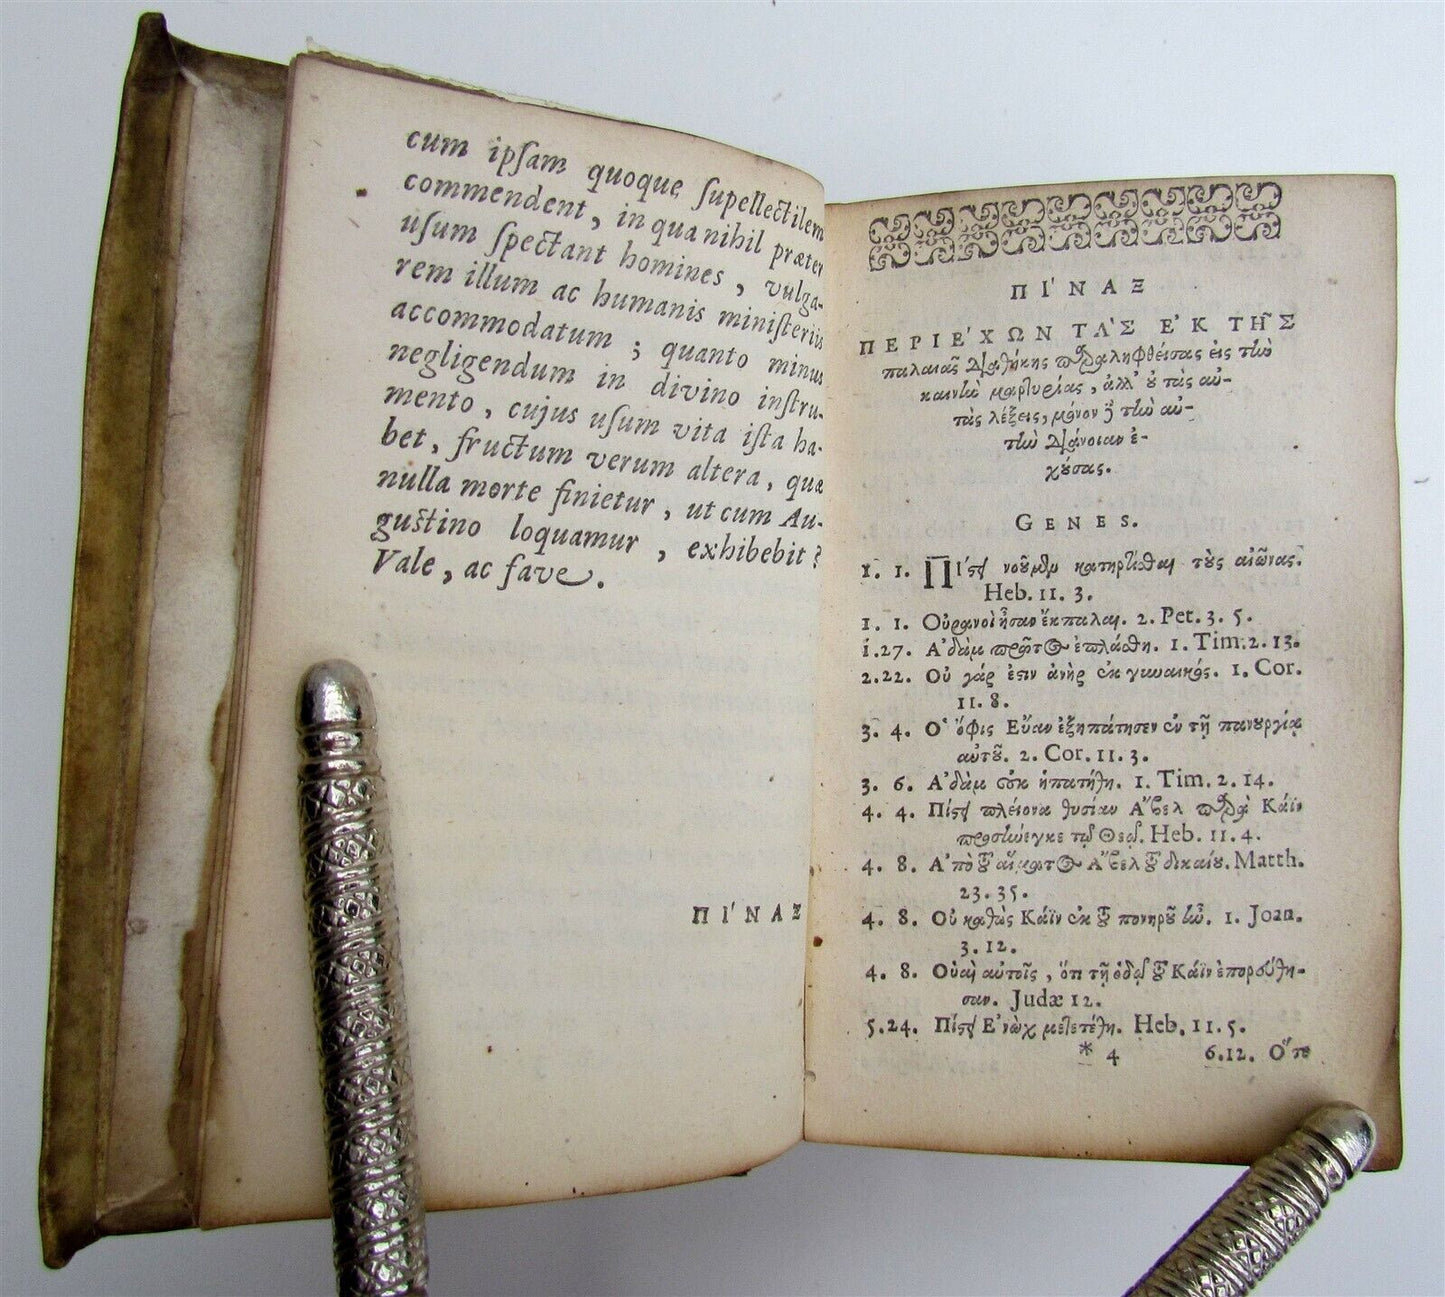 cum ipſam quoque ſupellectilem
commendent, in qua nihil præter
uſum ſpectant homines, vulga-
rem illum ac humanis miniſteriis
accommodatum; quanto minus
negligendum in divino inſtru-
mento, cujus uſum vita iſta ha-
bet, fructum verum altera, quæ
nulla morte finietur, ut cum Au-
guſtino loquamur, exhibebit?
Vale, ac fave.
ΠΙ´ΝΑΞ
ΠΙ´ΝΑΞ
ΠΕΡΙΕ´ΧΩΝ ΤΑ`Σ Ε᾿Κ ΤΗ῀Σ
παλαιᾶς Διαθήκης παραληφθείσας εἰς τὴν
καινὴν μαρτυρίας, ἀλλ᾿ οὐ τὰς αὐ-
τὰς λέξεις, μόνον δὲ τὴν αὐ-
τὴν Διάνοιαν ἐ-
χούσας.
GENES.
1. 1. Πίστει νοοῦμεν κατηρτίσθαι τοὺς αἰῶνας.
Heb. 11. 3.
1. 1. Οὐρανοὶ ἦσαν ἔκπαλαι. 2. Pet. 3. 5.
1.27. Α᾿δὰμ πρῶτος ἐπλάσθη. 1. Tim. 2. 13.
2.22. Οὐ γάρ ἐστιν ἀνὴρ ἐκ γυναικός. 1. Cor.
11. 8.
3. 4. Ο῾ ὄφις Εὔαν ἐξηπάτησεν ἐν τῇ πανουργίᾳ
αὐτοῦ. 2. Cor. 11. 3.
3. 6. Α᾿δὰμ οὐκ ἠπατήθη. 1. Tim. 2. 14.
4. 4. Πίστει πλείονα θυσίαν Α῎βελ παρὰ Κάϊν
προσήνεγκε τῷ Θεῷ. Heb. 11. 4.
4. 8. Α᾿πὸ τοῦ αἵματος Α῎βελ τοῦ δικαίου. Matth.
23. 35.
4. 8. Οὐ καθὼς Κάϊν ἐκ τοῦ πονηροῦ ἦν. 1. Joan.
3. 12.
4. 8. Οὐαὶ αὐτοῖς, ὅτι τῇ ὁδῷ τοῦ Κάϊν ἐπορεύθη-
σαν. Judæ 12.
5.24. Πίστει Ε᾿νὼχ μετετέθη. Heb. 11. 5.
* 4 6.12. Ο῞τε